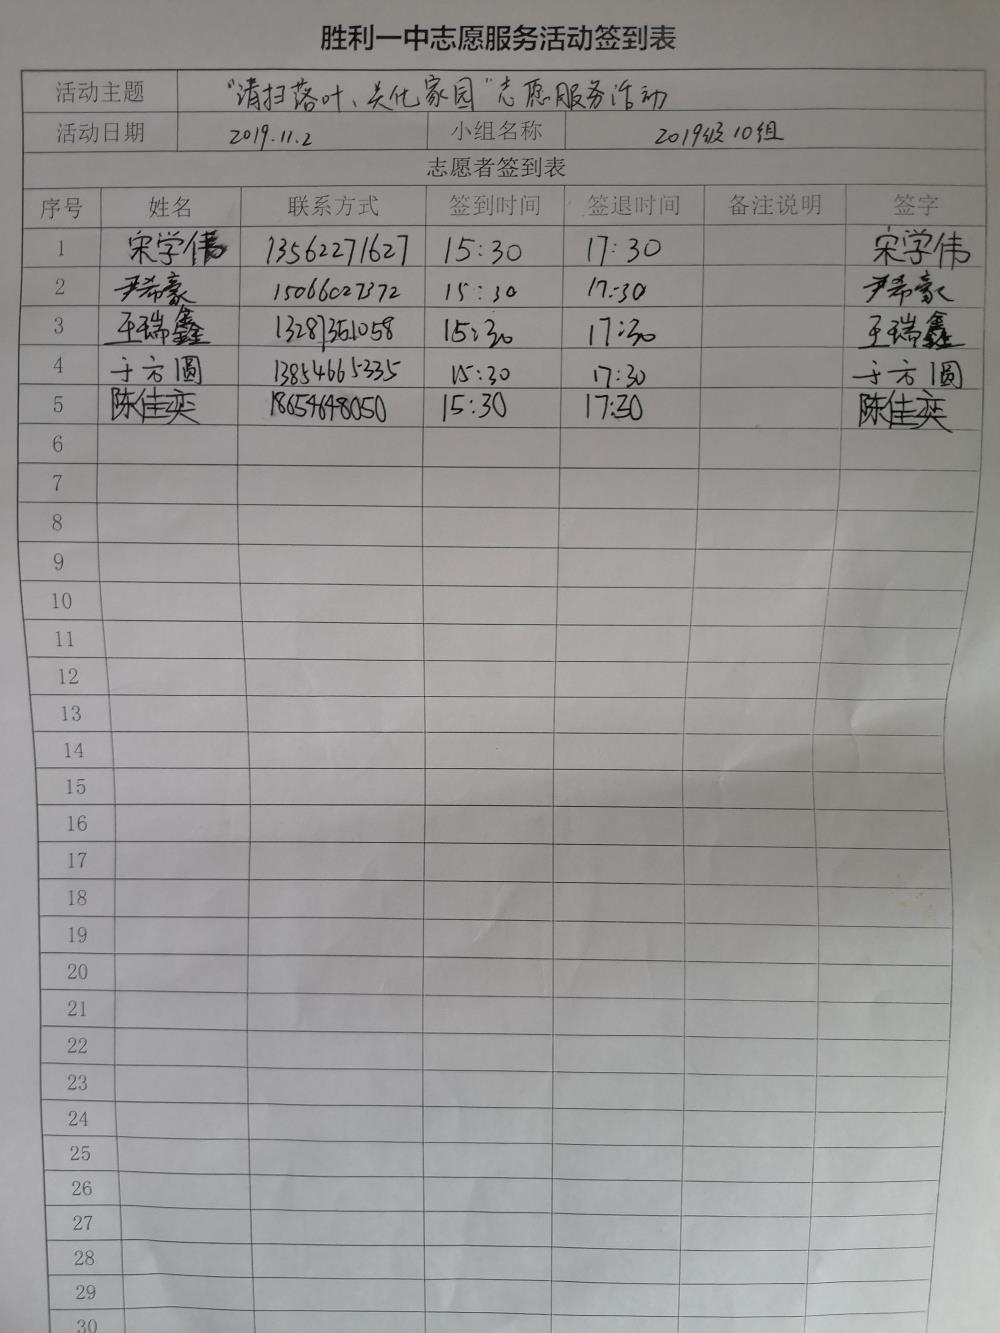 胜利一中志愿服务活动签到表
活动主题 “清扫落叶、美化家园”志愿服务活动
活动日期 2019.11.2 小组名称 2019级10组
志愿者签到表
序号 姓名 联系方式 签到时间 签退时间 备注说明 签字
1 宋学伟 13562271627 15:30 17:30 宋学伟
2 尹希豪 15066027372 15:30 17:30 尹希豪
3 王瑞鑫 15:30 17:30 王瑞鑫
4 于方圆 13854665335 15:30 17:30 于方圆
5 陈佳奕 18654648050 15:30 17:30 陈佳奕
6
7
8
9
10
11
12
13
14
15
16
17
18
19
20
21
22
23
24
25
26
27
28
29
30